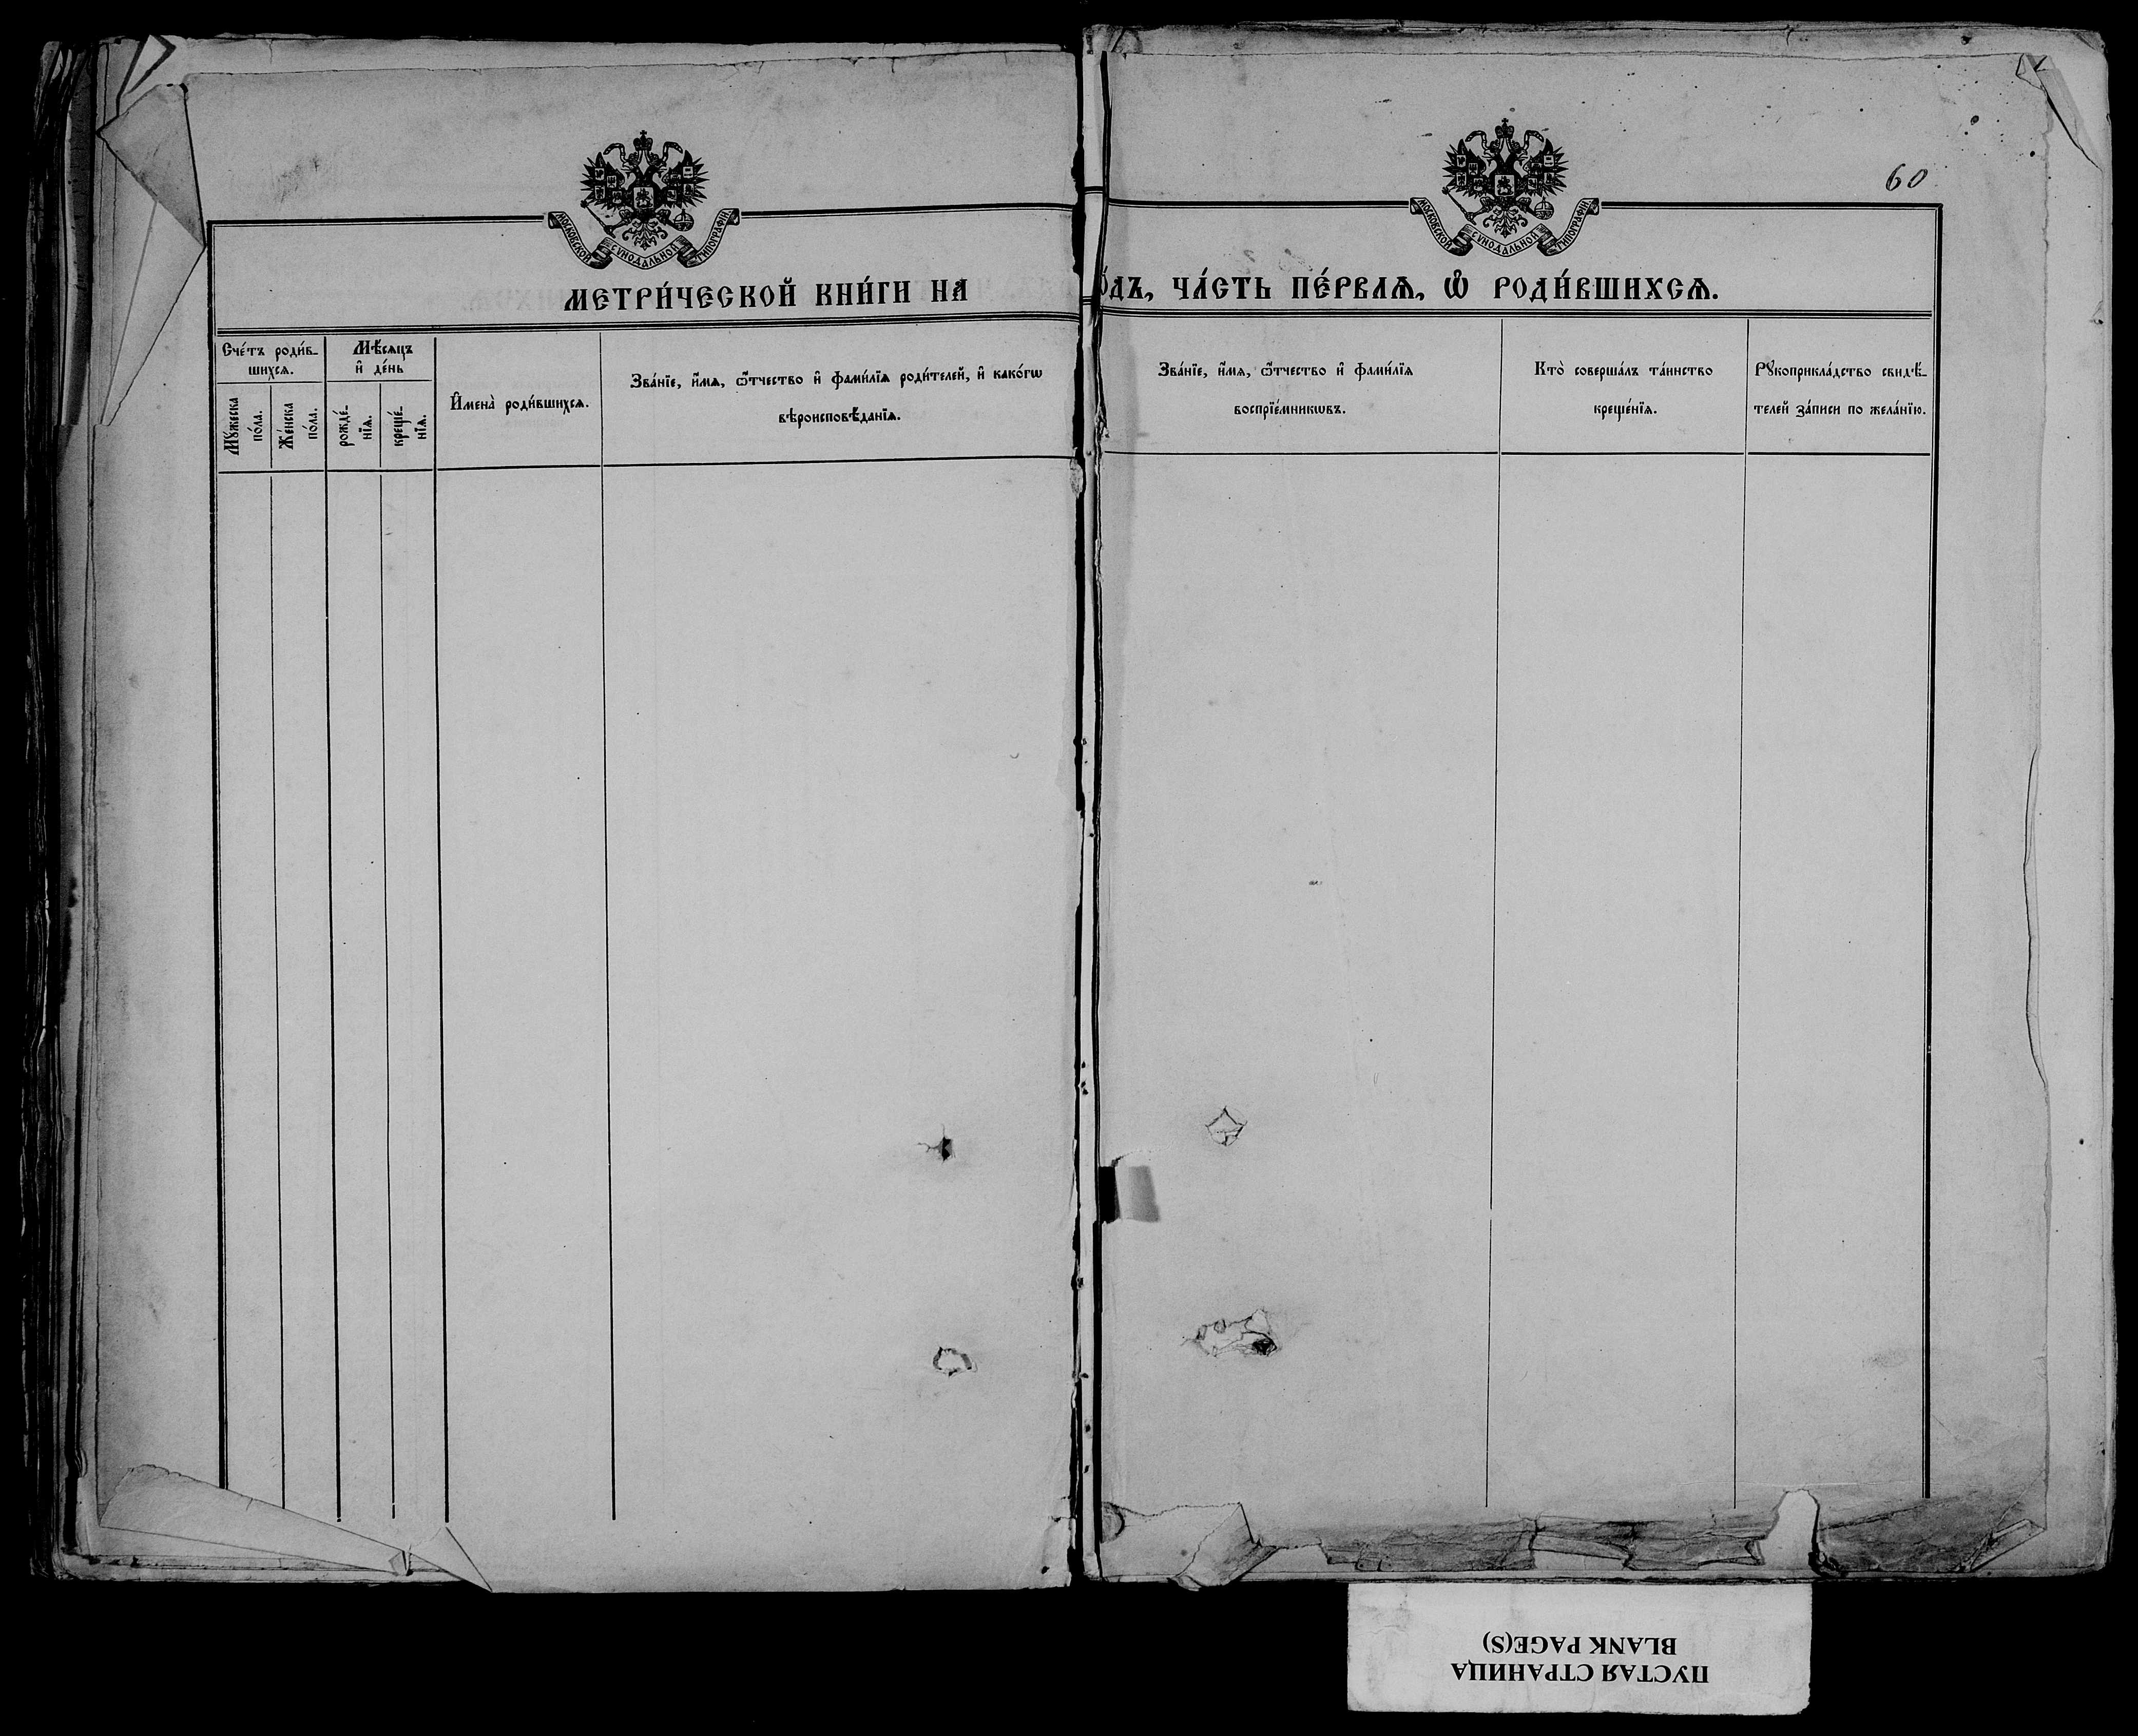 60
МОСКОВСКОЙ СѴНОДАЛЬНОЙ ТИПОГРАФІИ
МОСКОВСКОЙ СѴНОДАЛЬНОЙ ТИПОГРАФІИ
МЕТРИ́ЧЕСКОЙ КНИ́ГИ НА
о́дъ, ЧА́СТЬ ПЕ́РВАѦ, Ѽ РОДИ́ВШИХСѦ.
Сче́тъ роди́в-
шихсѧ.
Мꙋ́жеска
по́ла.
Же́нска
по́ла.
Мѣ́сѧцъ
и҆ де́нь
рожде́-
нїѧ.
креще́-
нїѧ.
И҆мена̀ роди́вшихсѧ.
Зва́нїе, и҆́мѧ, ѻ҆́тчество и҆ фами́лїѧ роди́телей, и҆ како́гѡ
вѣроисповѣ́данїѧ.
Зва́нїе, и҆́мѧ, ѻ҆́тчество и҆ фами́лїѧ
воспрїе́мникѡвъ.
Кто̀ соверша́лъ та́инство
креще́нїѧ.
Рꙋкоприкла́дство свидѣ́-
телей за́писи по жела́нїю.
ПУСТАЯ СТРАНИЦА
BLANK PAGE(S)